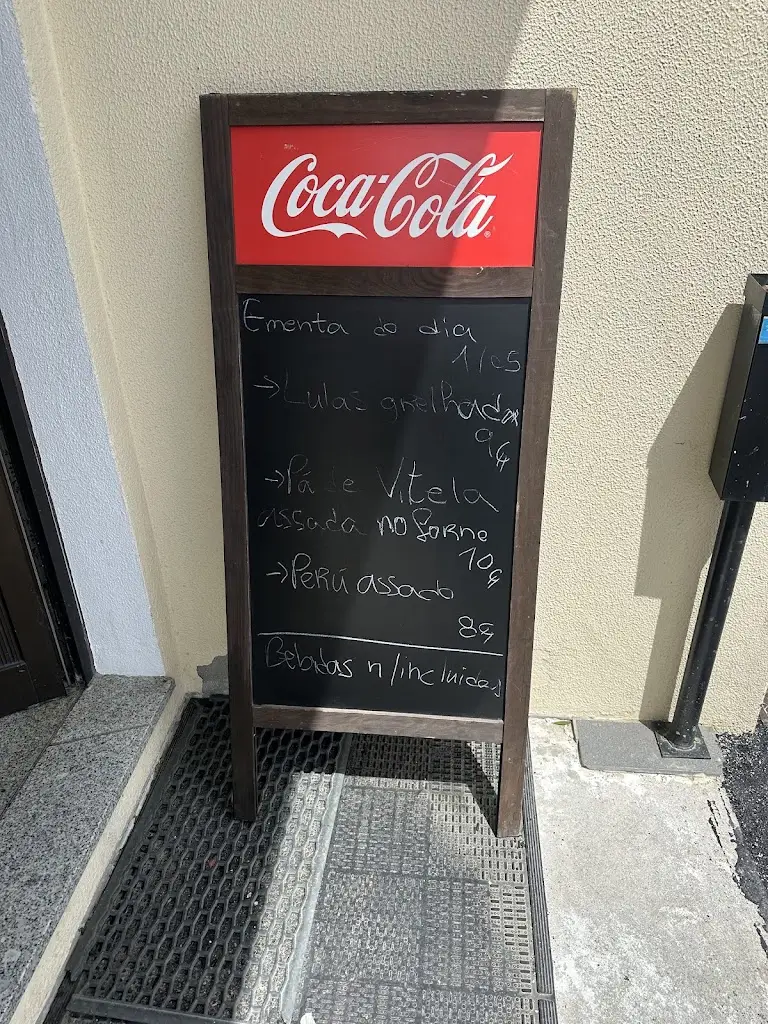 Coca-Cola
Ementa do dia
1/05
→Lulas grelhada
9€
→Pá de Vitela
assada no forno
10€
→Perú assado
8€
Bebidas n/incluidas